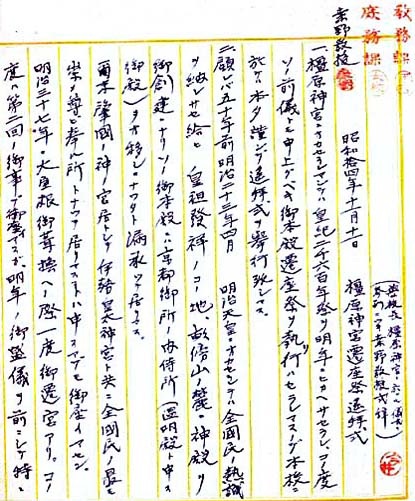 教務課
庶務課
桑野教授
昭和拾四年十一月十一日
橿原神宮遷座祭遙拝式
一、橿原神宮ニオカセラレマシテハ皇紀二千六百年祭ヲ明年ニヒカヘサセラレコノ度
ソノ前儀トモ申上グベキ御本殿遷座祭ヲ執行ハセラレマスノデ本校ニ
於テ本夕謹シデ遙拝式ヲ挙行致シマス。
二、顧レバ五十年前明治二十三年四月 明治天皇ニオカセラレテハ全国民ノ熱誠
ヲ納レサセ給ヒ 皇祖發祥ノコノ地、畝傍山ノ麓ニ神殿ヲ
御創建ニナリソノ御本殿ニハ京都御所ノ内侍所
御殿)ヲオ移シニナツタト漏承ツテ居リマス。
爾来肇國ノ神ノ宮居トシテ伊勢皇大神宮ト共ニ全國民ノ最モ
崇メ尊ビ奉ル所トナツテ居リマスコトハ申スマデモ御座イマセン。
明治三十七年、大屋根御葺換ヘノ際一度御遷宮アリ。コノ
度ハ第二回ノ御事デ御座マスガ明年ノ御盛儀ヲ前ニシテ特ニ